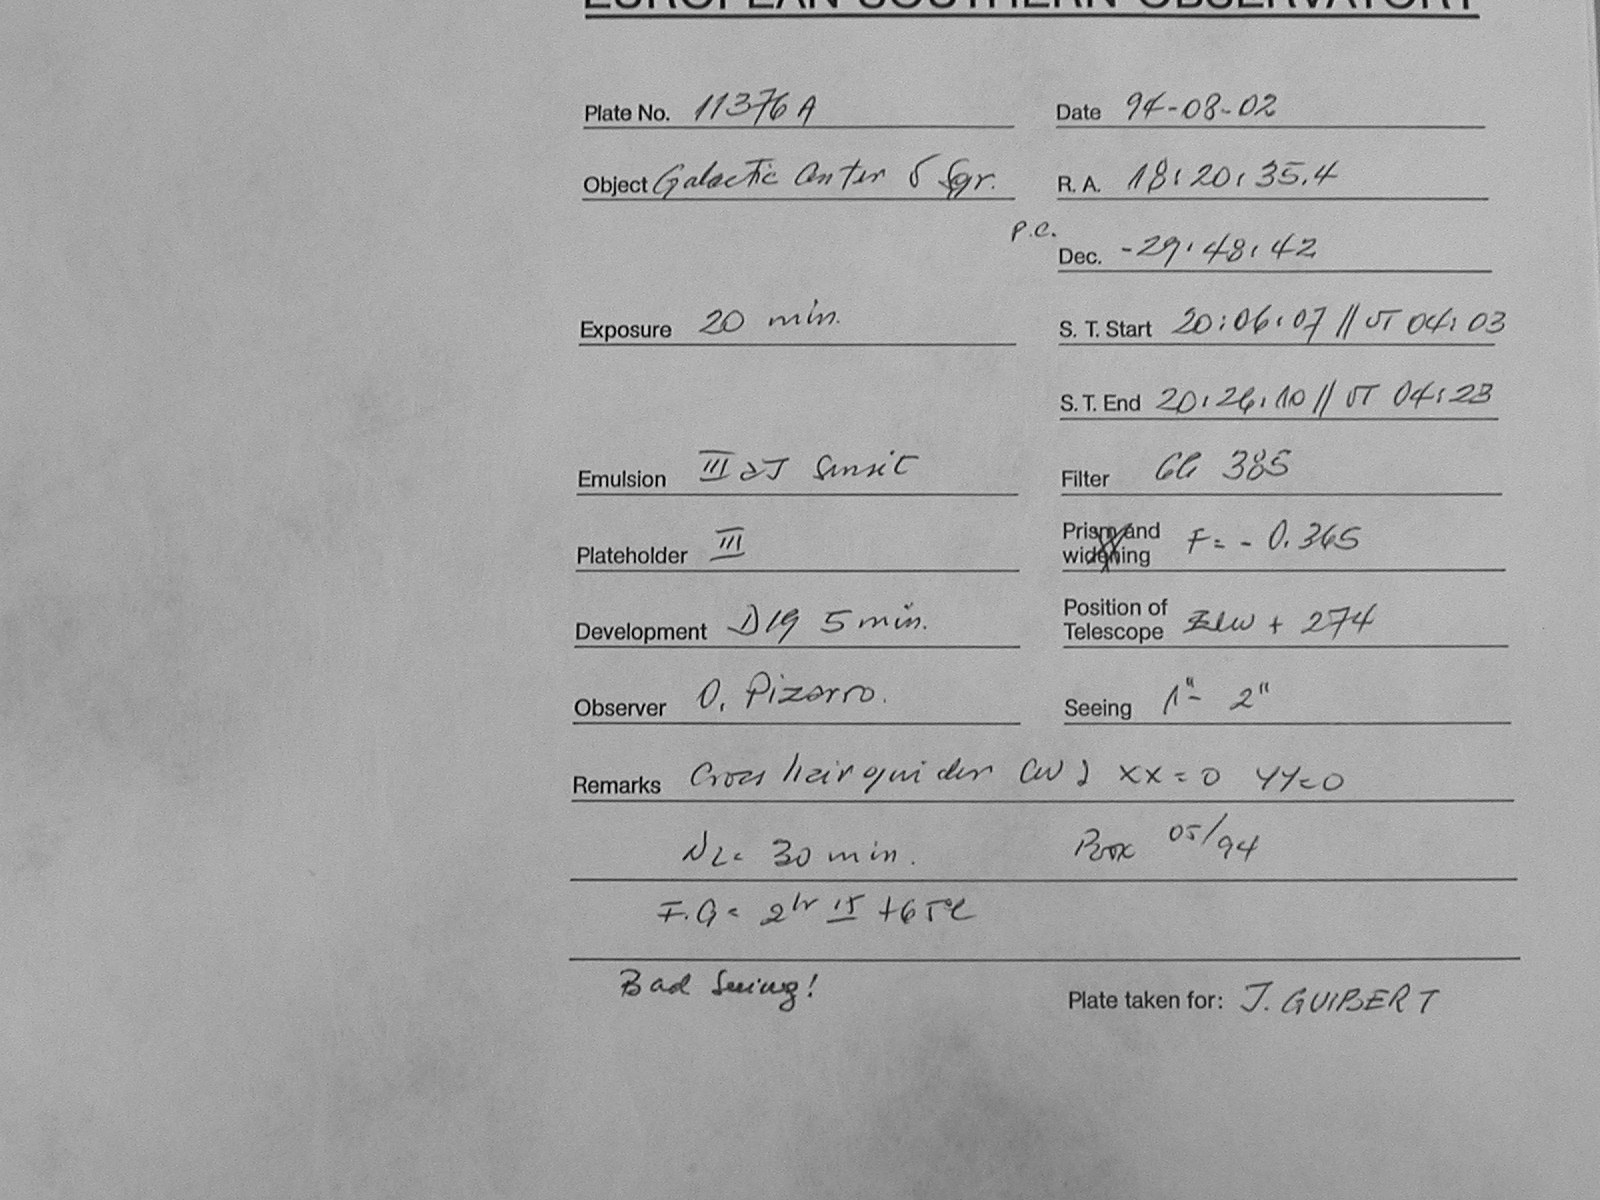 EUROPEAN SOUTHERN OBSERVATORY
Plate No. 11376 A Date 94-08-02
Object Galactic Center δ Sgr. R. A. 18:20:35.4
P.C. Dec. -29:48:42
Exposure 20 min. S. T. Start 20:06:07 // UT 04:03
S. T. End 20:26:10 // UT 04:23
Emulsion III aJ Sensit Filter GG 385
Plateholder III Prism and widening F= - 0.365
Development D19 5 min. Position of Telescope + 274
Observer O. Pizarro. Seeing 1"- 2"
Remarks Cross hair guider XX = 0 YY=0
N2= 30 min. Box 05/94
F.G = 2hr 15 +65°C
Bad Seeing! Plate taken for: J. GUIBERT